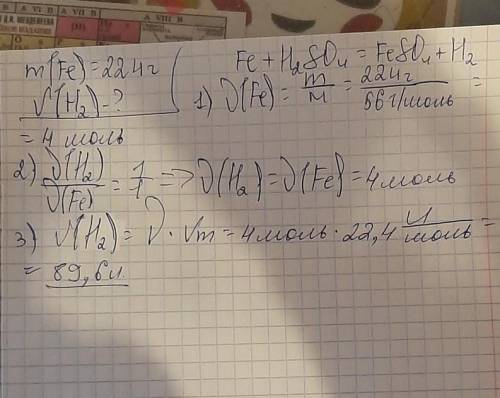 A VI B
A VII B
A VIII B
m(Fe) = 224г
V(H₂) - ?
Fe + H₂SO₄ = FeSO₄ + H₂
1) ν(Fe) = m/M = 224г/56г/моль =
= 4 моль
2) ν(H₂)/ν(Fe) = 1/1 => ν(H₂) = ν(Fe) = 4моль
3) V(H₂) = ν · Vm = 4моль · 22,4 л/моль =
= 89,6л.